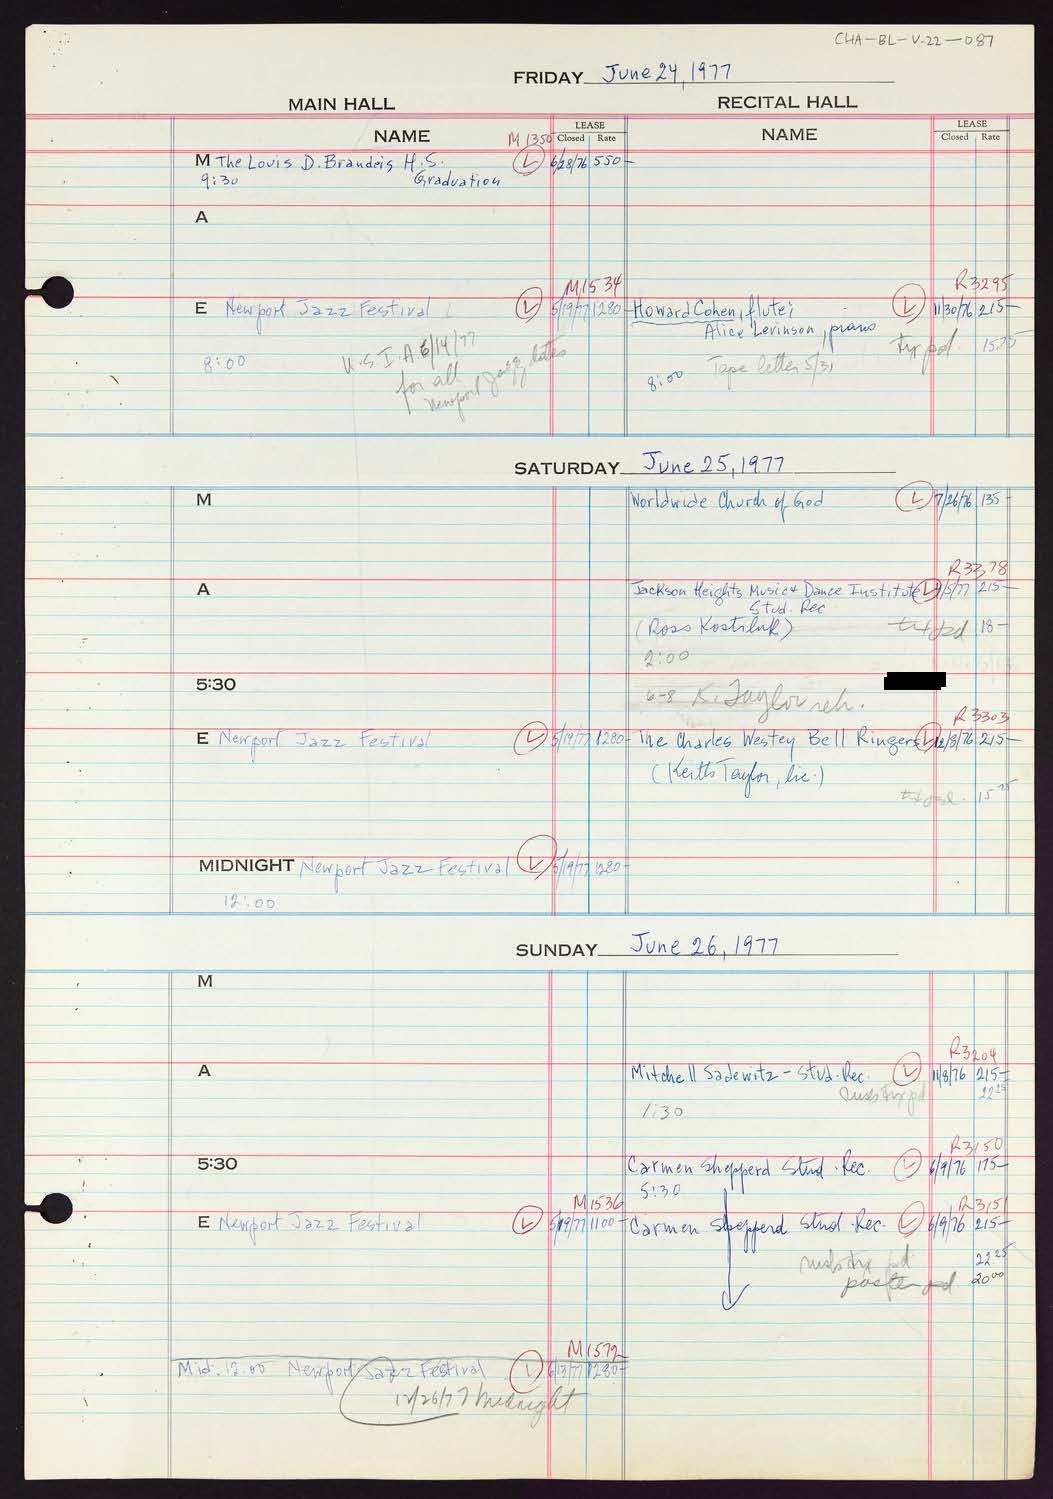 CHA-BL-V-22-087
FRIDAY June 24, 1977
MAIN HALL RECITAL HALL
NAME M1350 LEASE Closed Rate NAME LEASE Closed Rate
M The Louis D. Brandeis H.S. L 6/28/76 550-
9:30 Graduation
A
M1534 R3295
E Newport Jazz Festival L 5/19/77 1280- Howard Cohen, flute; L 11/30/76 215-
Alice Levinson, piano
8:00 U.S.I.A. 6/14/77 tix pd. 15.75
for all 8:00 Tape letter 5/31
Newport Jazz dates
SATURDAY June 25, 1977
M Worldwide Church of God L 7/26/76 135-
R3378
A Jackson Heights Music & Dance Institute L 1/5/77 215-
Stud. Rec
(Ross Kostiluk) tix pd 18-
2:00
5:30
6-8 K. Taylor reh.
R3303
E Newport Jazz Festival L 5/19/77 1280- The Charles Westey Bell Ringers L 12/8/76 215-
(Keith Taylor, lic.)
tix pd. 15
MIDNIGHT Newport Jazz Festival L 5/19/77 1280-
12:00
SUNDAY June 26, 1977
M
R3204
A Mitchell Sadewitz - Stud. Rec. L 11/8/76 215-
tix pd 22 25
1:30
R3150
5:30 Carmen Shepperd Stud. Rec. L 6/9/76 175-
5:30
M1536 R3151
E Newport Jazz Festival L 5/19/77 1100- Carmen Shepperd Stud. Rec. L 6/9/76 215-
tix pd 22 25
poster pd. 20 00
M1572
Mid. 12:00 Newport Jazz Festival L 6/13/77 1280-
midnight